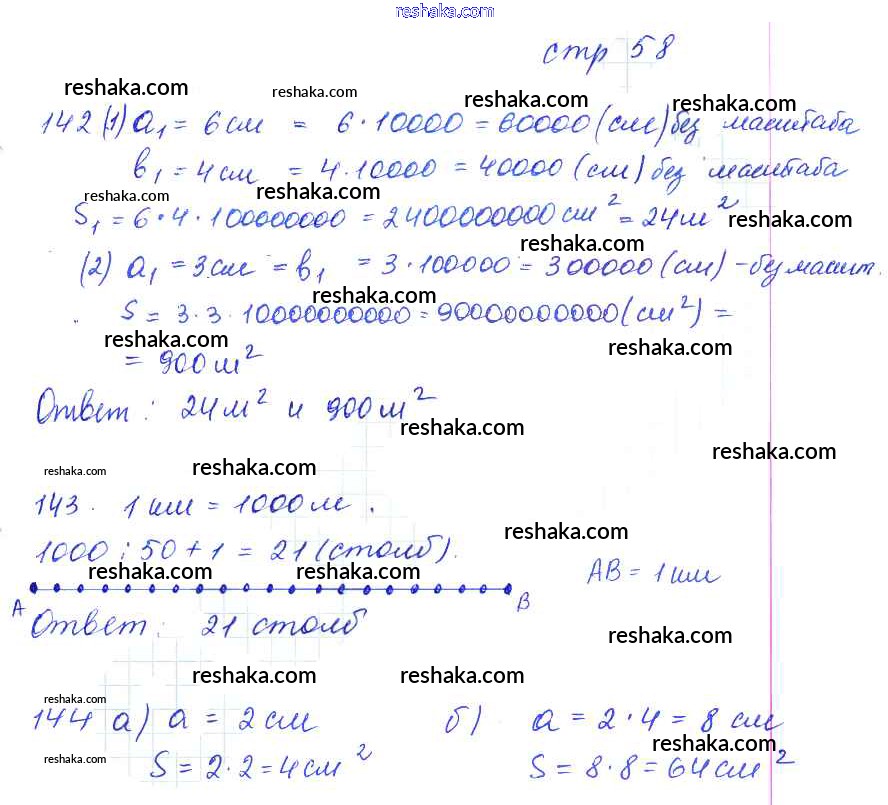 reshaka.com
стр 58
reshaka.com reshaka.com reshaka.com reshaka.com
142 (1) a₁ = 6 см = 6 · 10000 = 60000 (см) без масштаба
в₁ = 4 см = 4 · 10000 = 40000 (см) без масштаба
reshaka.com reshaka.com
S₁ = 6 · 4 · 100000000 = 2400000000 см² = 24 м²
reshaka.com reshaka.com
(2) a₁ = 3 см = в₁ = 3 · 100000 = 300000 (см) - без масшт.
reshaka.com
S = 3 · 3 · 10000000000 = 90000000000 (см²) =
reshaka.com reshaka.com
= 900 м²
Ответ: 24 м² и 900 м²
reshaka.com
reshaka.com
reshaka.com reshaka.com
143. 1 км = 1000 м.
reshaka.com
1000 : 50 + 1 = 21 (столб).
reshaka.com reshaka.com
AB = 1 км
A B
Ответ: 21 столб
reshaka.com
reshaka.com reshaka.com
reshaka.com
144 а) a = 2 см б) a = 2 · 4 = 8 см
reshaka.com reshaka.com
S = 2 · 2 = 4 см² S = 8 · 8 = 64 см²